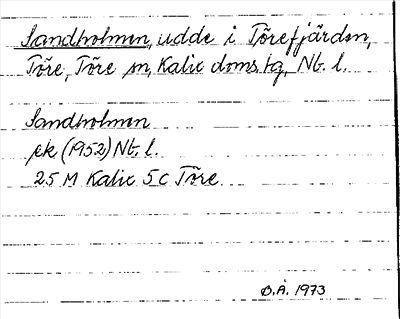 Sandholmen, udde i Törefjärden,
Töre, Töre sn, Kalix doms.tg, Nb. l.
Sandholmen
ek (1952) Nb. l.
25 M Kalix 5 C Töre
B.Å. 1973